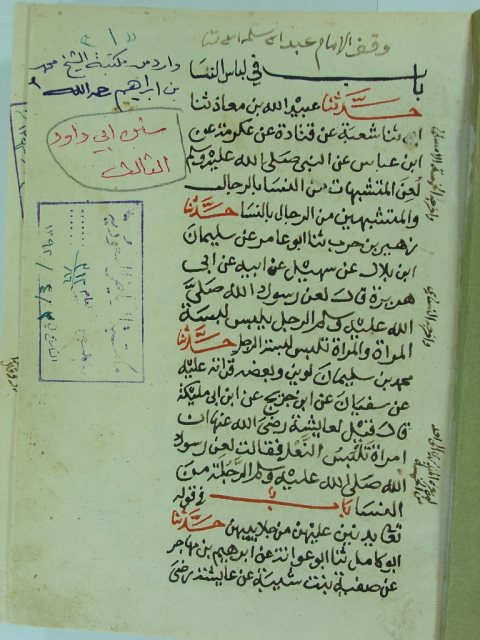 وقف الإمام عبد الله
« ١ »
وارد من مكتبة الشيخ محمد
بن ابراهيم رحمه الله
سنن ابي داود
الثالث
باب في لباس النسا
حدثنا عبيد الله بن معاذ ثنا
ابي ثنا شعبة عن قتادة عن عكرمة عن
ابن عباس عن النبي صلى الله عليه وسلم
لعن المتشبهات من النسا بالرجال
والمتشبهين من الرجال بالنسا حدثنا
زهير بن حرب ثنا ابو عامر عن سليمان
ابن بلال عن سهيل عن ابيه عن ابي
هريرة قال لعن رسول الله صلى
الله عليه وسلم الرجل يلبس لبسة
المراة والمراة تلبس لبسة الرجل حدثنا
محمد بن سليمان لوين وبعضه قراته عليه
عن سفيان عن ابن جريج عن ابن ابي مليكة
قال قيل لعايشة رضى الله عنها ان
امراة تلبس النعل فقالت لعن رسول
الله صلى الله عليه وسلم الرجلة من
النسا باب في قوله
تعالى يدنين عليهن من جلابيبهن حدثنا
ابو كامل ثنا ابو عوانة عن ابرهيم بن مهاجر
عن صفية بنت شيبة عن عايشة رضى